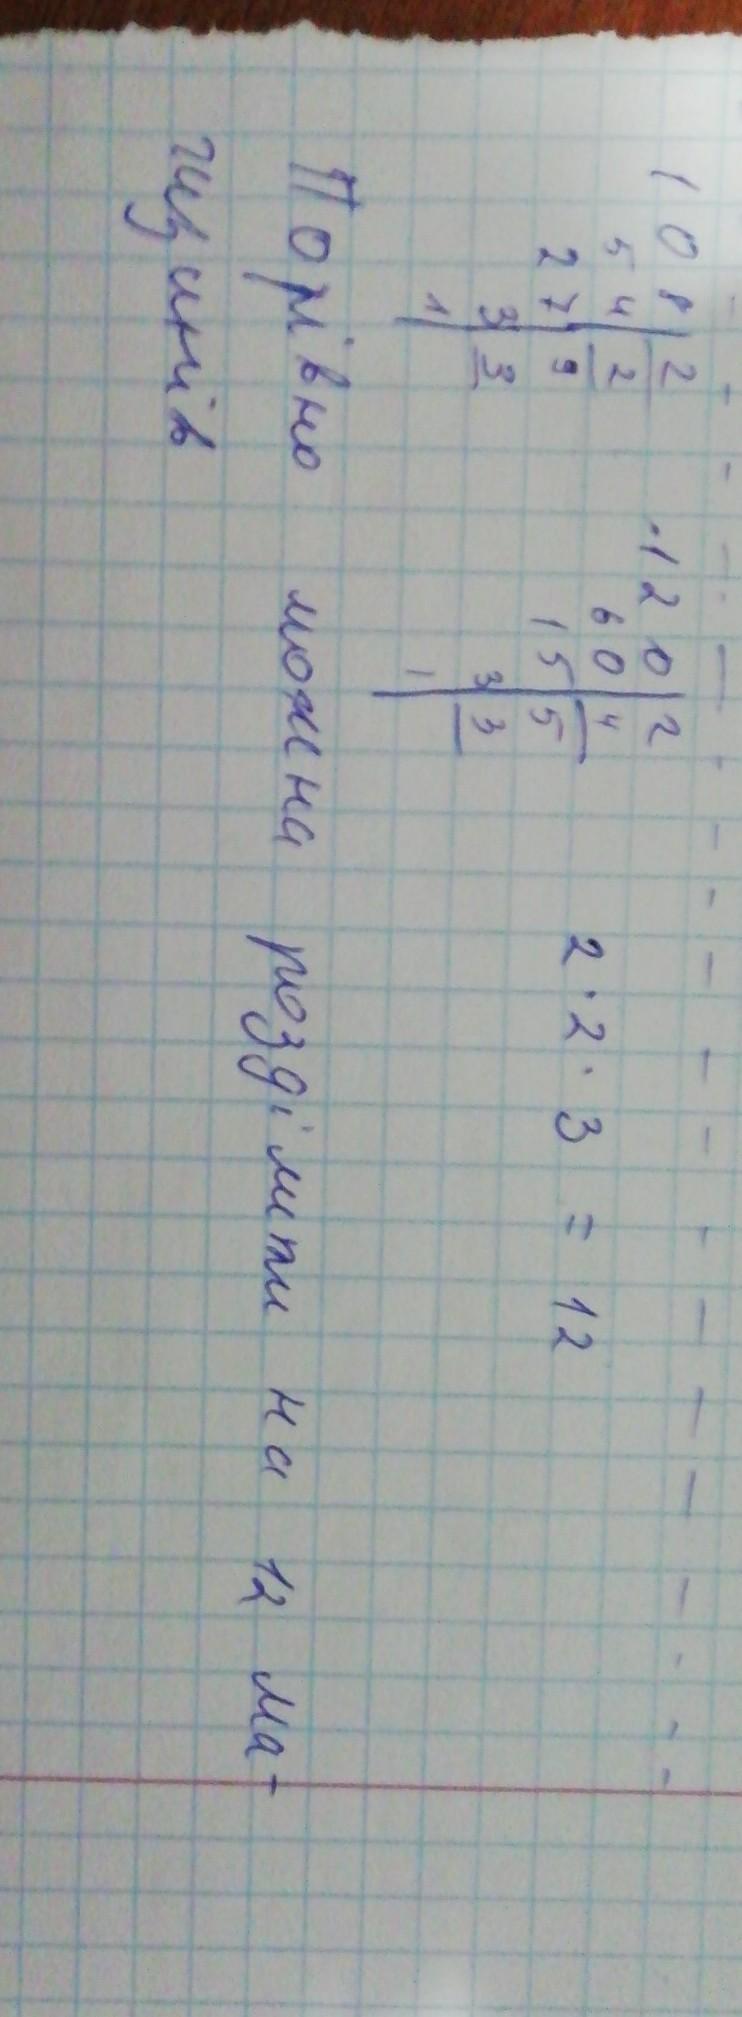 108 | 2
54 | 2
27 | 9
3 | 3
1
120 | 2
60 | 4
15 | 5
3 | 3
1
2 · 2 · 3 = 12
Порівно можна розділити на 12 ма-
газинів